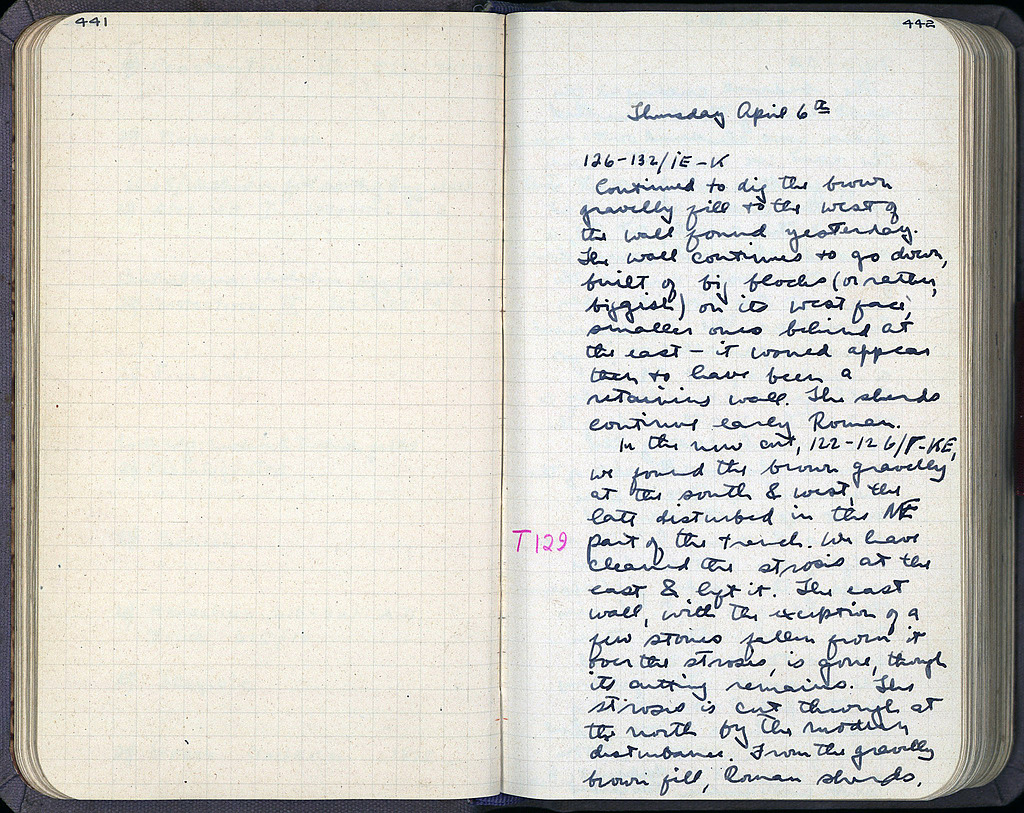 441
442
Thursday April 6th
126-132/ΙΕ-Κ
Continued to dig the brown
gravelly fill to the west of
the wall found yesterday.
The wall continues to go down,
built of big blocks (or rather,
biggish) on its west face,
smaller ones behind at
the east – it would appear
then to have been a
retaining wall. The sherds
continue early Roman.
In the new cut, 122-126/Γ-ΚΕ,
we found the brown gravelly
at the south & west, the
late disturbed in the NE
T129
part of the trench. We have
cleaned the strosis at the
east & left it. The east
wall, with the exception of a
few stones fallen from it
over the strosis, is gone, though
its cutting remains. The
strosis is cut through at
the north by the modern
disturbance. From the gravelly
brown fill, Roman sherds.